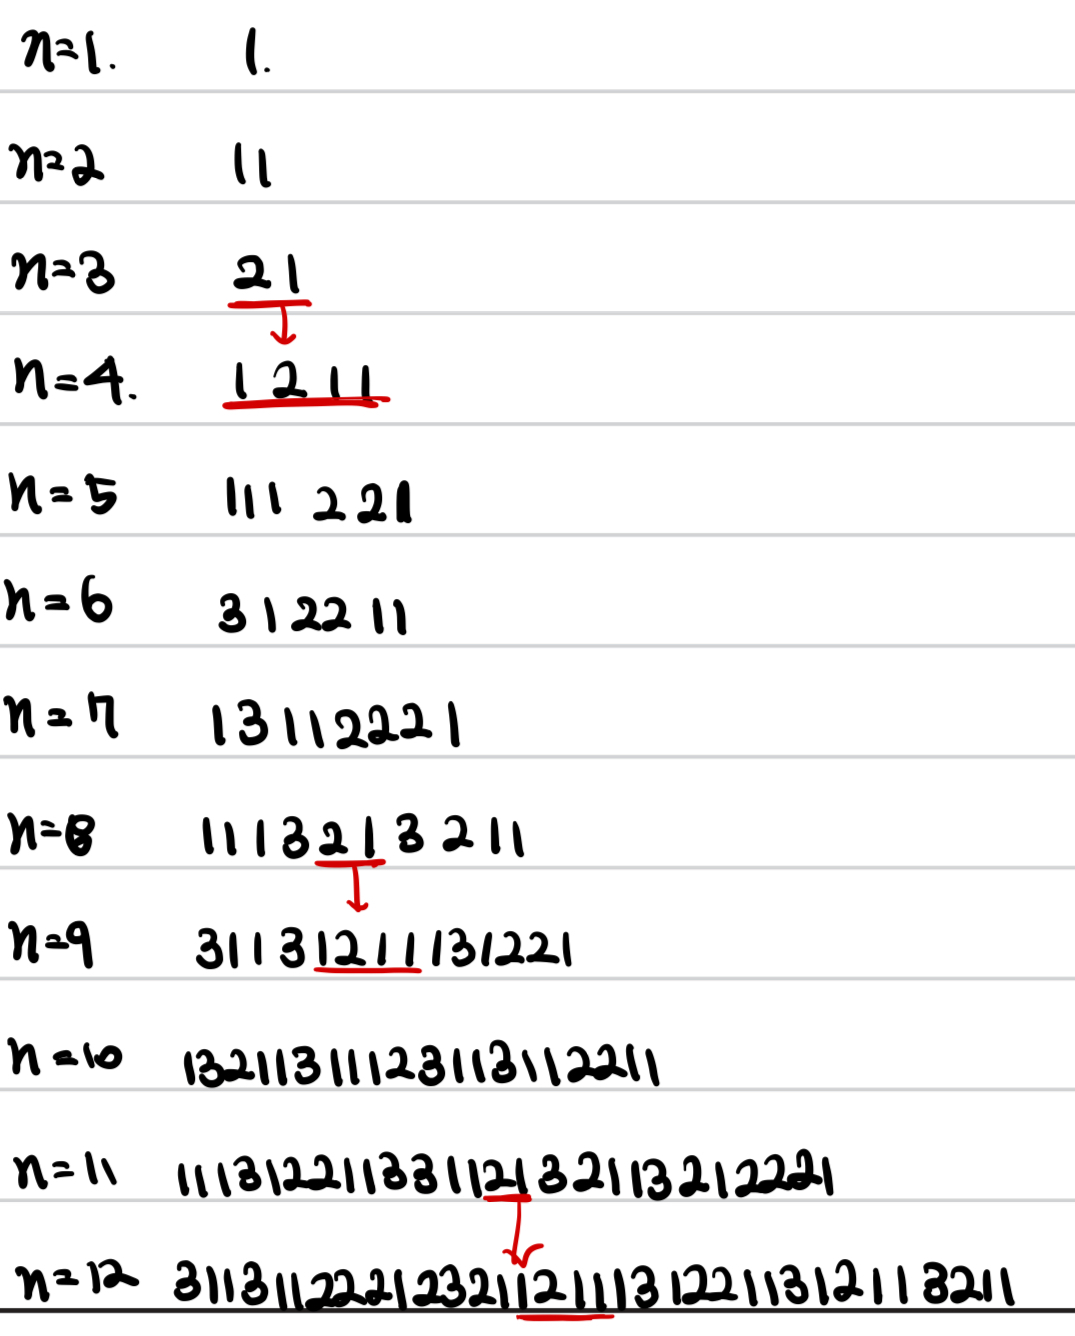 n=1. 1.
n=2 11
n=3 21
n=4. 1211
n=5 111 221
n=6 312211
n=7 13112221
n=8 1113213211
n=9 31131211131221
n=10 13211311123113112211
n=11 11131221133112132113212221
n=12 3113112221232112111312211312113211